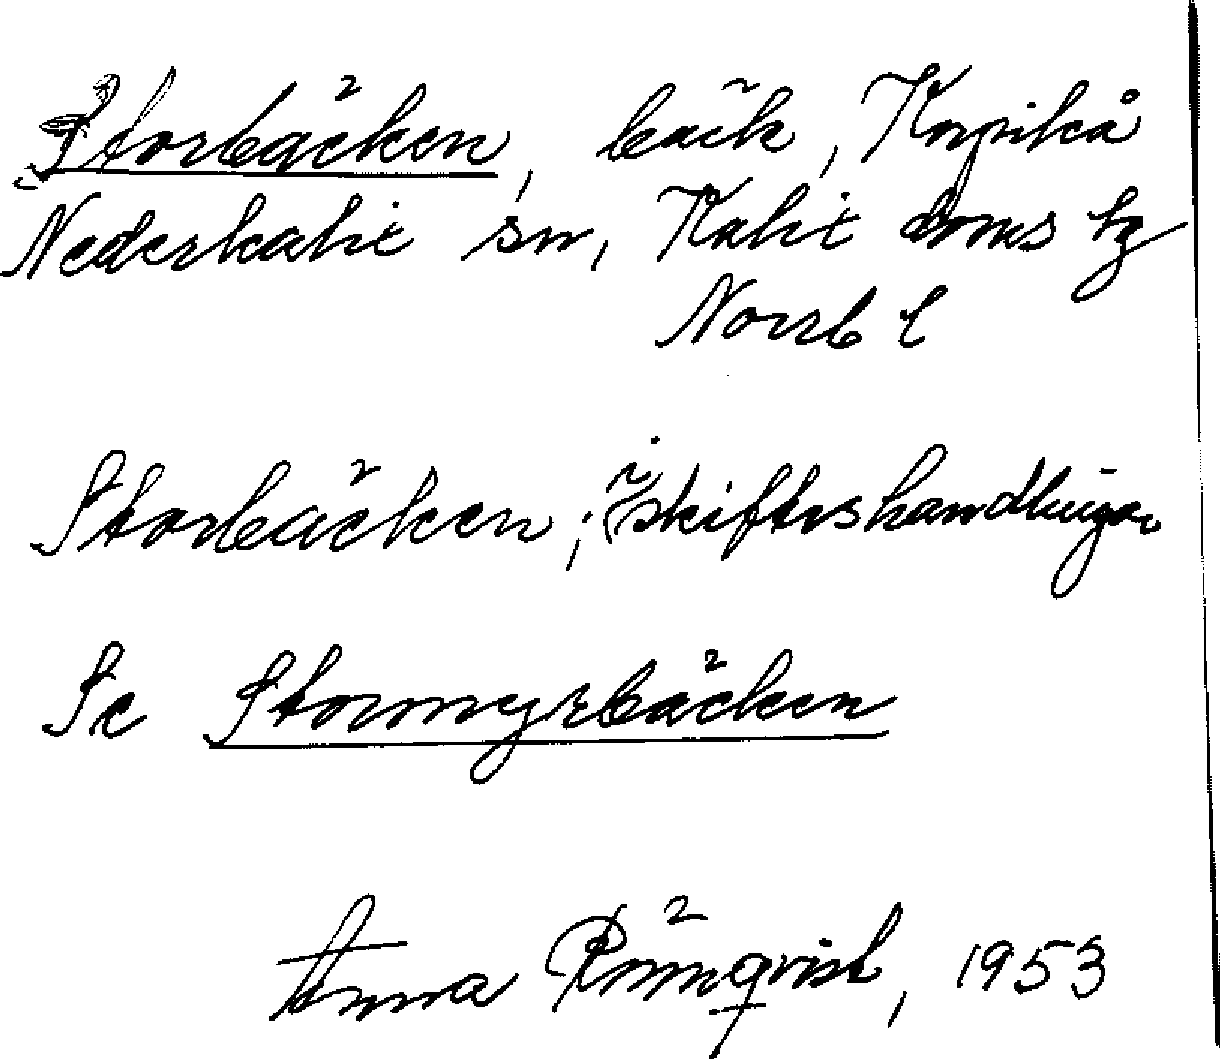 Storbäcken, bäck, Korpikå
Nederkalix sn, Kalix doms tg
Norrb l
Storbäcken, i skifteshandlingar
Se Stormyrbäcken
Anna Rönnqvist, 1953